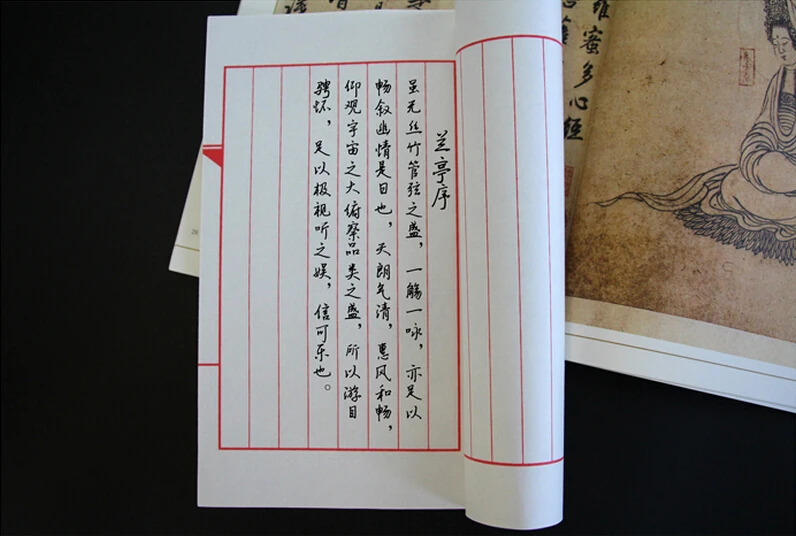 兰亭序
虽无丝竹管弦之盛，一觞一咏，亦足以
畅叙幽情是日也，天朗气清，惠风和畅，
仰观宇宙之大俯察品类之盛，所以游目
骋怀，足以极视听之娱，信可乐也。
罗蜜多心经